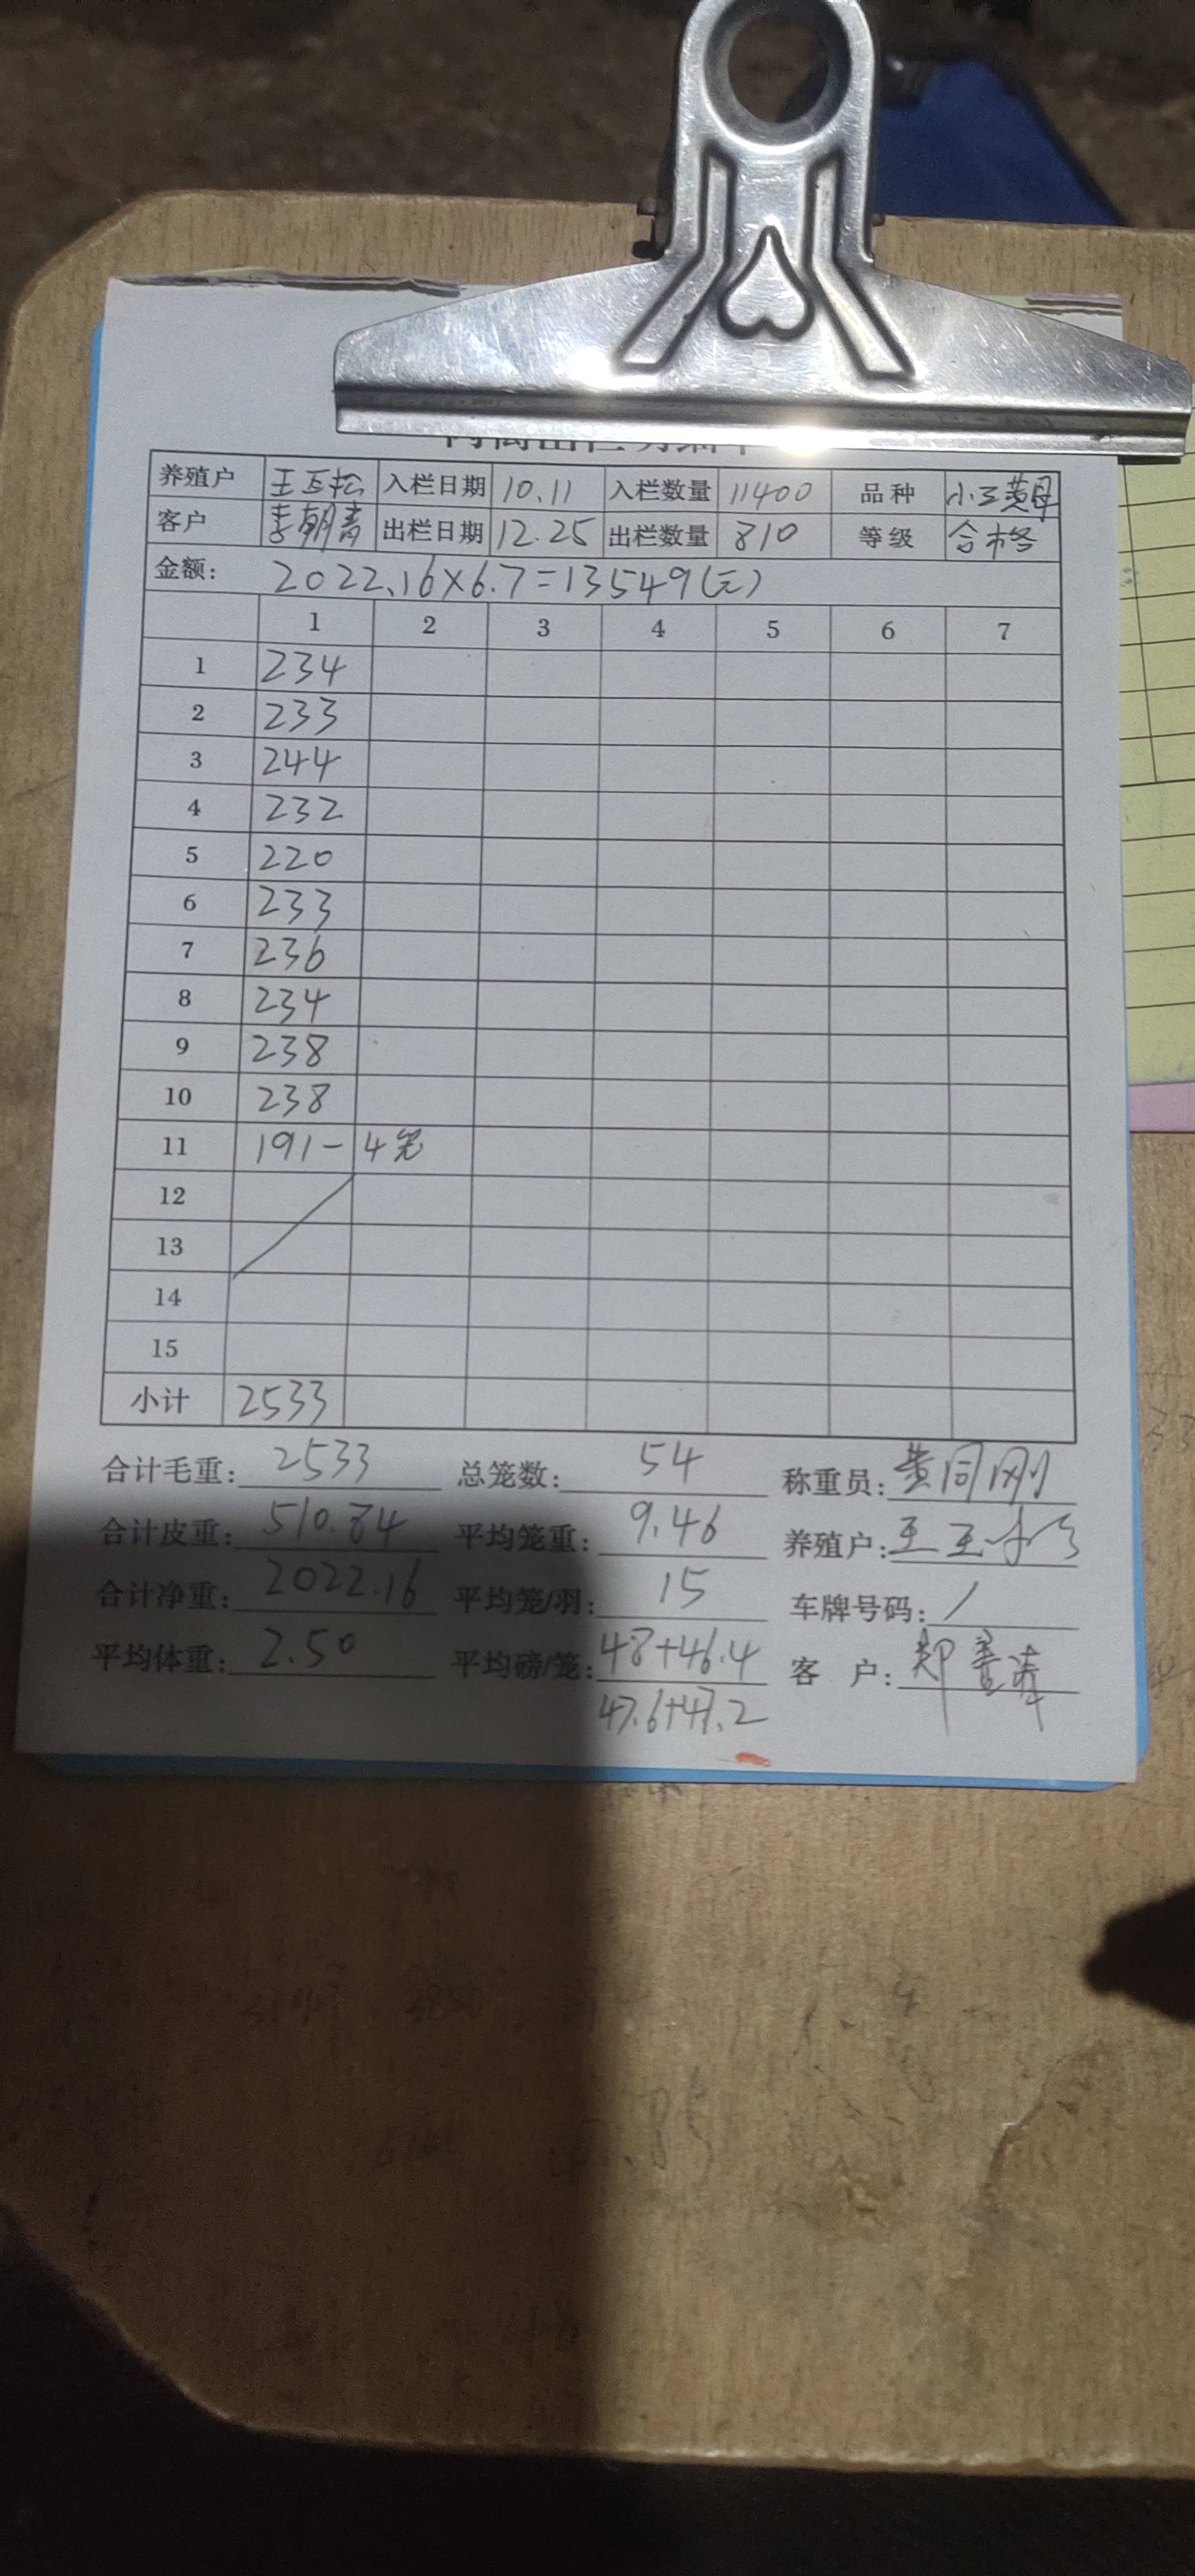 养殖户 王玉松 入栏日期 10.11 入栏数量 11400 品种 小三黄母
客户 李朝青 出栏日期 12.25 出栏数量 810 等级 合格
金额: 2022.16×6.7=13549(元)
1 2 3 4 5 6 7
1 234
2 233
3 244
4 232
5 220
6 233
7 236
8 234
9 238
10 238
11 191-4笼
12
13
14
15
小计 2533
合计毛重: 2533 总笼数: 54 称重员: 黄同刚
合计皮重: 510.84 平均笼重: 9.46 养殖户: 王玉松
合计净重: 2022.16 平均笼/羽: 15 车牌号码: /
平均体重: 2.50 平均磅/笼: 48+46.4 客 户:
47.6+47.2